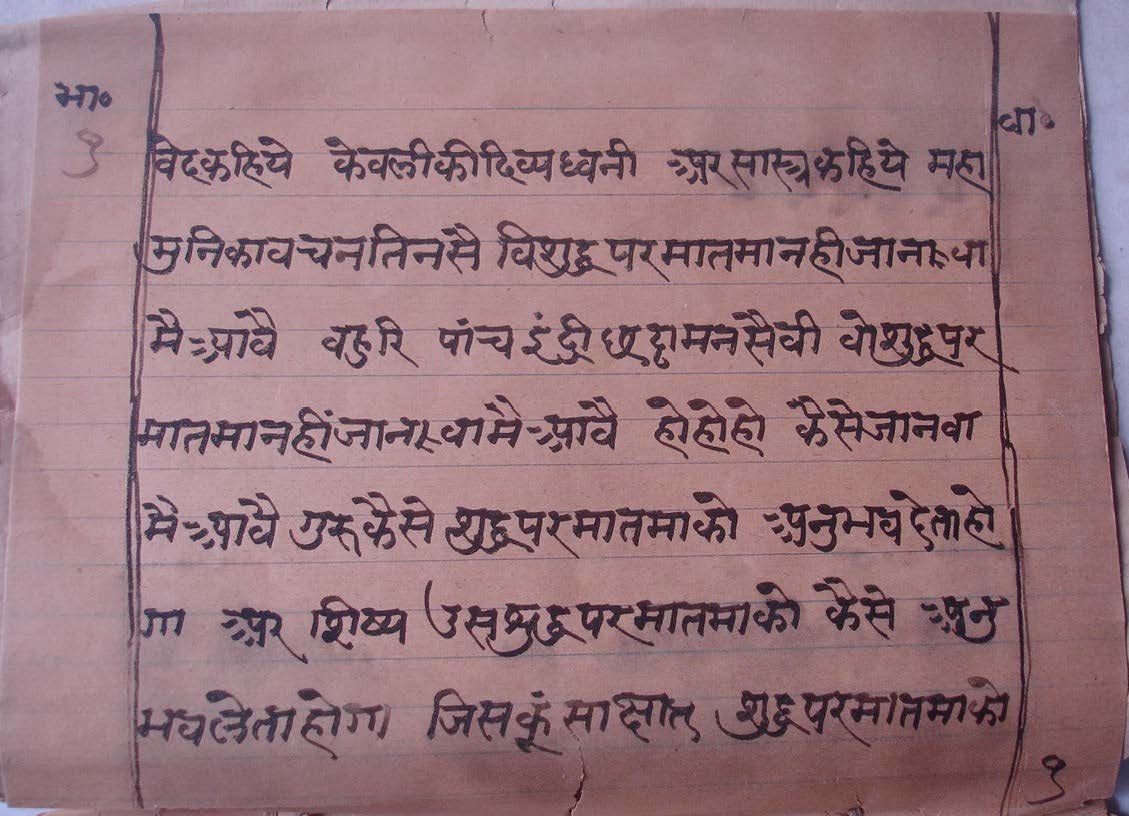 भा०
१
धा०
वेदकहिये केवलीकीदिव्यध्वनी अरसास्त्रकहिये महा
मुनिकावचनतिनसै विशुद्धपरमातमानहीजानवा
मैआवै बहुरि पांचइंद्रीछट्टामनसैवी वोशुद्धपर
मातमानहींजानवामैआवै होहोहो कैसेजानवा
मैआवै गुरुकैसे शुद्धपरमातमाको अनुभवदेताहो
गा अर शिष्य उसशुद्धपरमातमाको कैसे अनु
भवलेताहोगा जिसकूंसाक्षात् शुद्धपरमातमाको
१